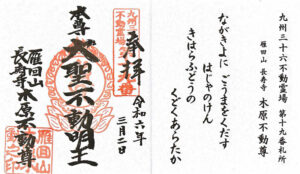 九州三十六不動霊場 第十九番札所
雁回山 長寿寺 木原不動尊
ながきよに ごうまをくだす
はじゃのけん
きはらふどうの
くどくあらたか
奉拝
令和六年
三月二日
九州三十六
不動霊場
本尊
大聖不動明王
雁回山
長寿寺木原不動尊